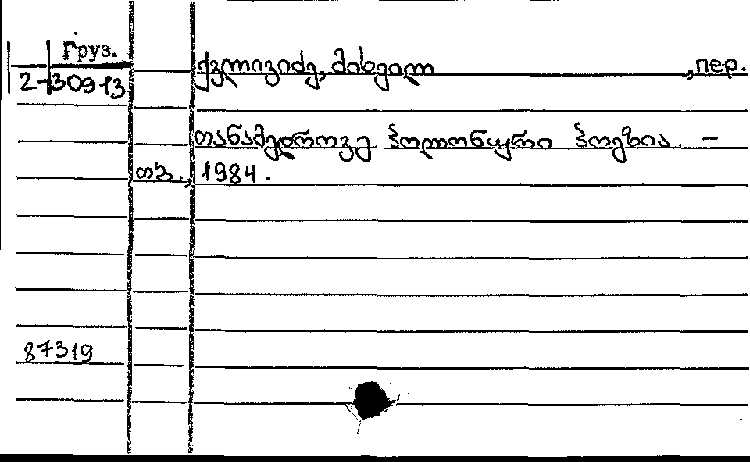 Груз.
2-30913
ქვლივიძე, მიხეილ , пер.
თანამედროვე პოლონური პოეზია. –
თბ., 1984.
87319